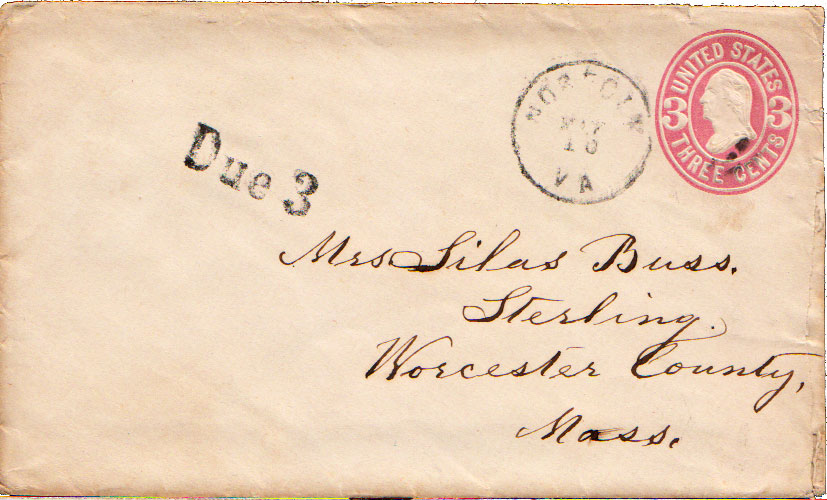 UNITED STATES
3 3
THREE CENTS
NORFOLK
10
VA
Due 3
Mrs Silas Buss.
Sterling.
Worcester County,
Mass.